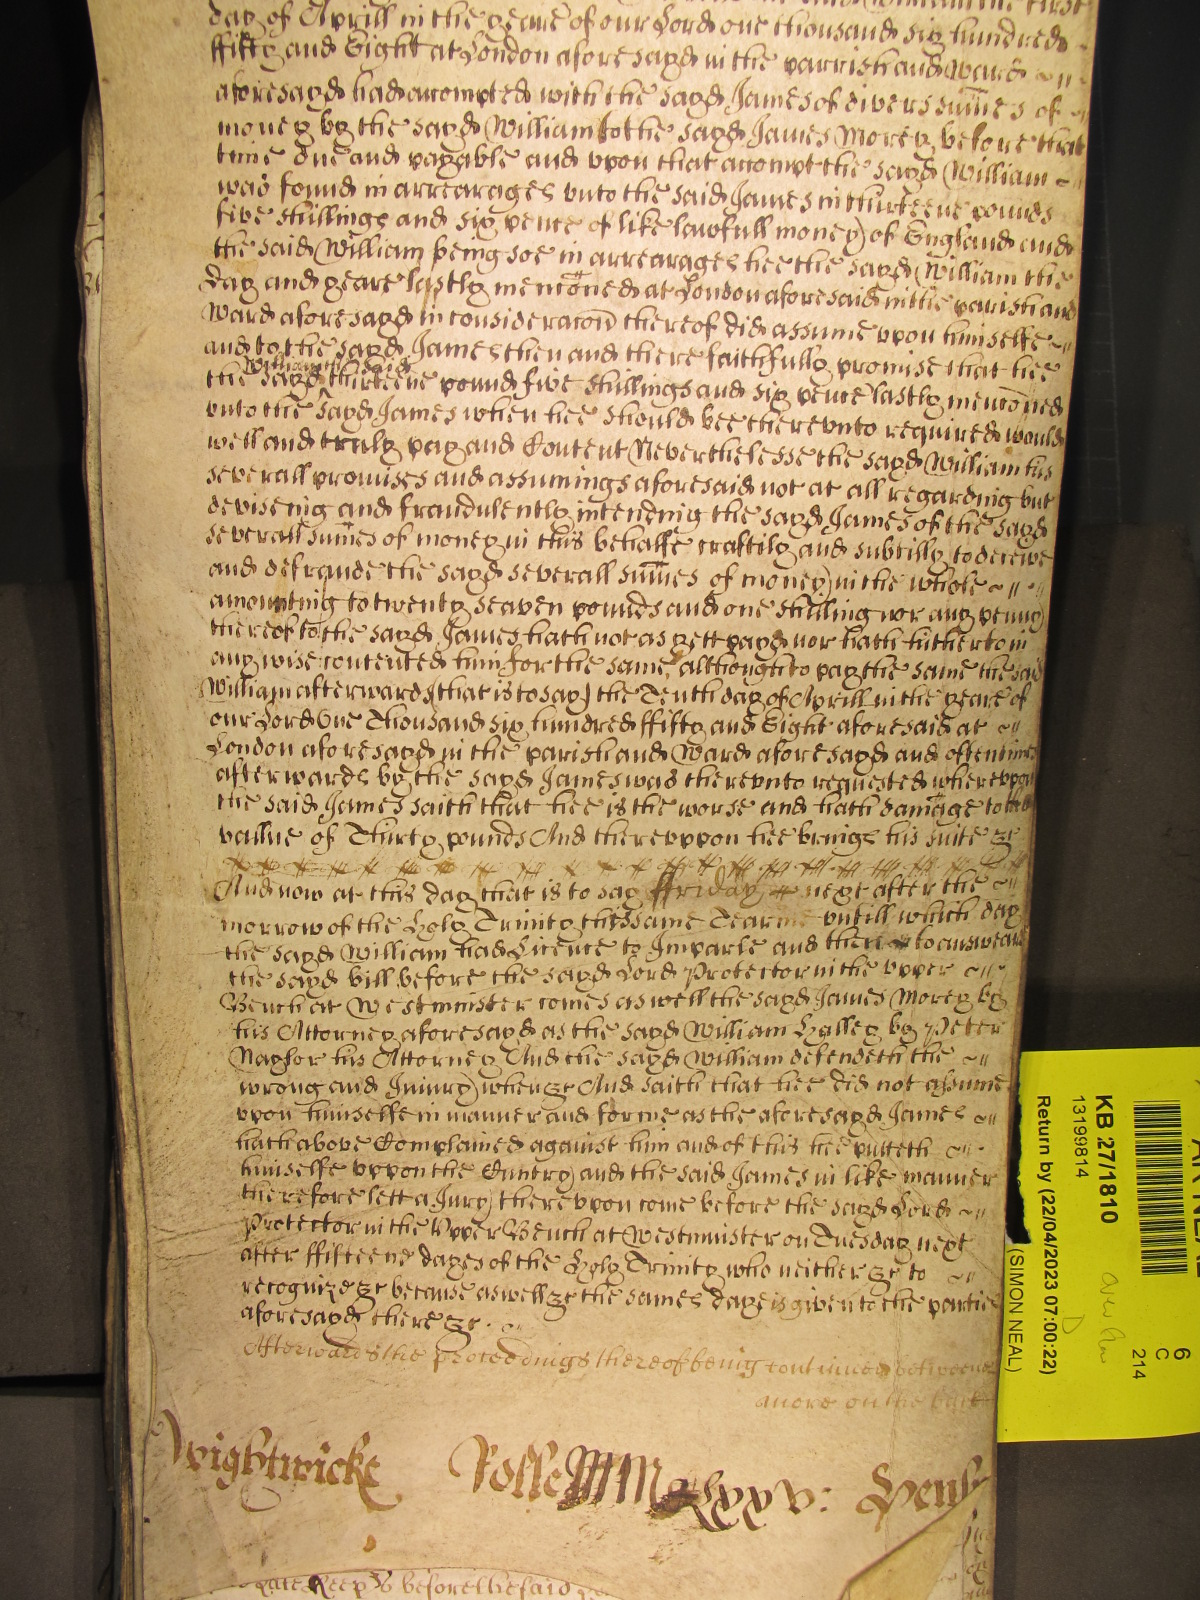 day of Aprill in the yeare of our Lord one thousand six hundred
ffifty and Eight at London aforesayd in the parrish and Ward
aforesayd had accompted with the sayd James of divers summes of
money by the sayd William to the sayd James Morey before that
time due and payable and upon that accompt the sayd William
was found in arrearages unto the said James in thirteene pounds
five shillings and six pence of like lawfull money of England and
the said William being soe in arrearages hee the sayd William the
day and yeare lastly mencõned at London aforesaid in the parish and
Ward aforesayd in consideracõn thereof did assume upon himselfe
and to the sayd James then and there faithfully promise that hee
William the said
the sayd thirteene pound five shillings and six pence lastly mencõned
unto the sayd James when hee should bee thereunto required would
well and truly pay and Content Neverthelesse the sayd William his
severall promises and assumings aforesaid not at all regarding but
deviseing and fraudulently intending the sayd James of the sayd
severall summes of money in this behalfe craftily and subtilly to deceive
and defraude the sayd severall summes of money in the whole
amounting to twenty seaven pounds and one shilling nor any penny
thereof to the sayd James hath not as yett payd nor hath hitherto in
any wise contented him for the same, although to pay the same the said
William afterwards that is to say the Tenth day of Aprill in the yeare of
our Lord One Thousand six hundred ffifty and Eight aforesaid at
London aforesayd in the parish and Ward aforesayd and oftentimes
afterwards by the sayd James was thereunto requested whereupon
the said James saith that hee is the worse and hath damage to the
vallue of Thirty pounds And thereuppon hee brings his suite &c
And now at this day that is to say ffriday next after the
morrow of the Holy Trinity this same Tearme untill which day
the sayd William had Licence to Imparle and then to answeare
the sayd bill before the sayd Lord Protector in the upper
Bench at Westminster comes aswell the sayd James Morey by
his Attorney aforesayd as the sayd William Halley by Peter
Naylor his Attorney And the sayd William defendeth the
wrong and Injury when &c And saith that hee did not assume
upon himselfe in manner and forme as the aforesayd James
hath above Complained against him and of this hee putteth
himselfe uppon the Cuntry and the said James in like manner
therefore lett a Jury thereupon come before the sayd Lord
Protector in the Upper Bench at Westminster on Tuesday next
after ffifteene dayes of the Holy Trinity who neither &c to
recognize &c because aswell &c the same day is given to the parties
aforesayd there &c
Afterwards the proceedings thereof being continued betweene
more on the back
Wightwicke Rolle lxxv:
before the said
KB 27/1810
13199814
Return by (22/04/2023 07:00:22)
(SIMON NEAL)
6
C
214